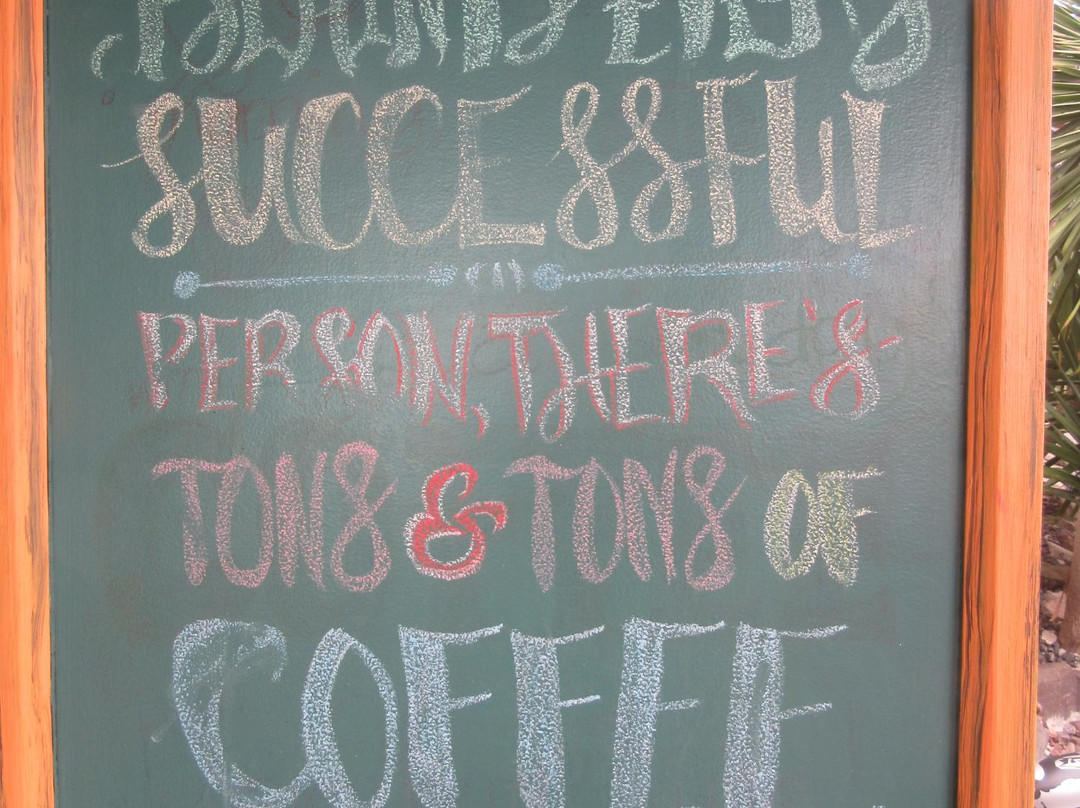 SUCCESSFUL
PERSON, THERE'S
TONS & TONS OF
COFFEE